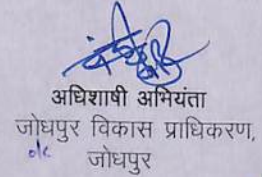 अधिशाषी अभियंता
जोधपुर विकास प्राधिकरण,
o/c जोधपुर